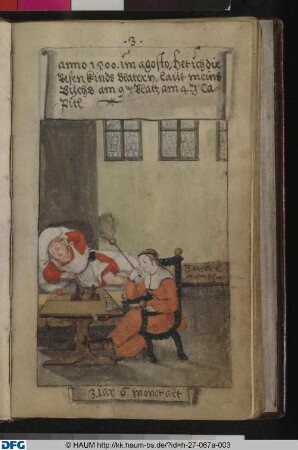 ·3·
anno 1500. im agosto, het ich die
besen kinds blatern, laut meins
Buechs am 9 Blatt, am 4 Ca
pitl
3 iar 6 monet alt
DFG
© HAUM http://kk.haum-bs.de/?id=h-27-067a-003